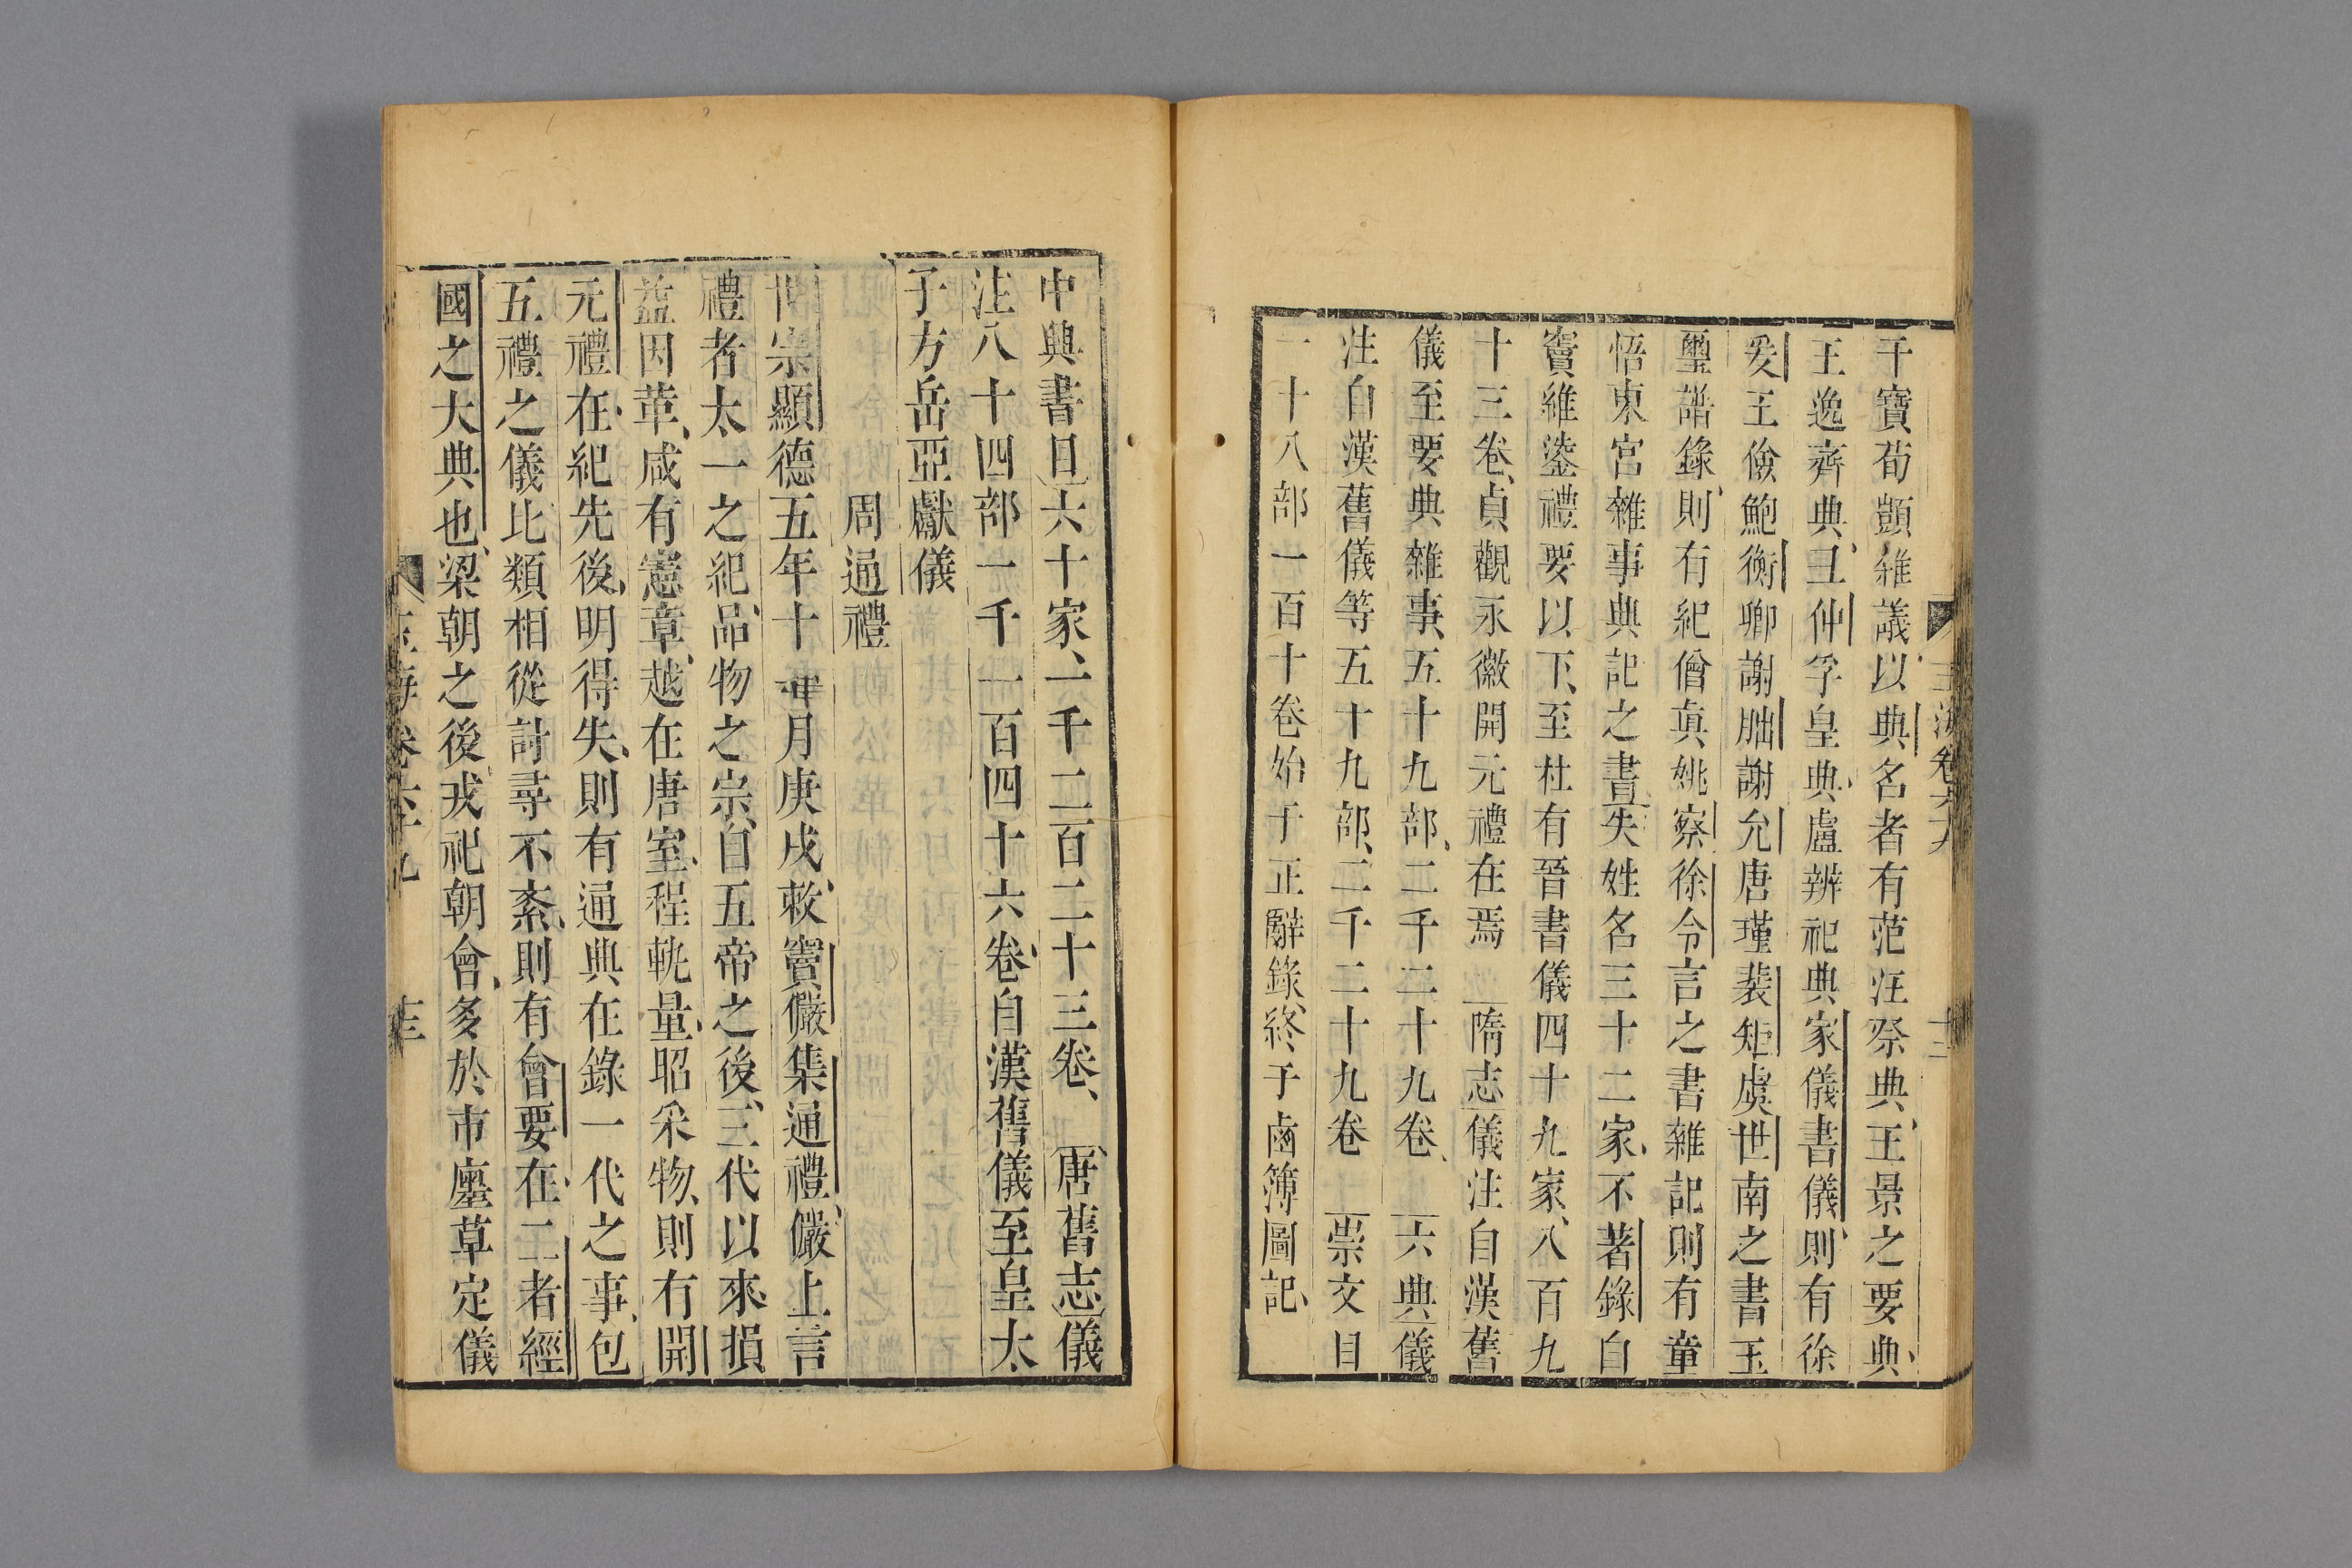 干寶荀顗雜議以典名者有范汪祭典王景之要典
王逸齊典王仲孚皇典盧辨祀典家儀書儀則有徐
爰王儉鮑衡卿謝朏謝允唐瑾裴矩虞世南之書玉
璽譜錄則有紀僧真姚察徐令言之書雜記則有童
悟東宮雜事典記之書失姓名三十二家不著錄自
竇維鋈禮要以下至杜有晉書儀四十九家八百九
十三卷貞觀永徽開元禮在焉 隋志儀注自漢舊
儀至要典雜事五十九部二千二十九卷 六典儀
注自漢舊儀等五十九部二千二十九卷 崇文目
一十八部一百十卷始于正辭錄終于鹵簿圖記
玉海卷六九 十三
中興書目六十家一千二百二十三卷 唐舊志儀
注八十四部一千一百四十六卷自漢舊儀至皇太
子方岳亞獻儀
周通禮
世宗顯德五年十一月庚戌敕竇儼集通禮儼上言
禮者太一之紀品物之宗自五帝之後三代以來損
益因革咸有憲章越在唐室程軌量昭采物則有開
元禮在紀先後明得失則有通典在錄一代之事包
五禮之儀比類相從討尋不紊則有會要在二者經
國之大典也梁朝之後戎祀朝會多於市廛草定儀
玉海卷六十九